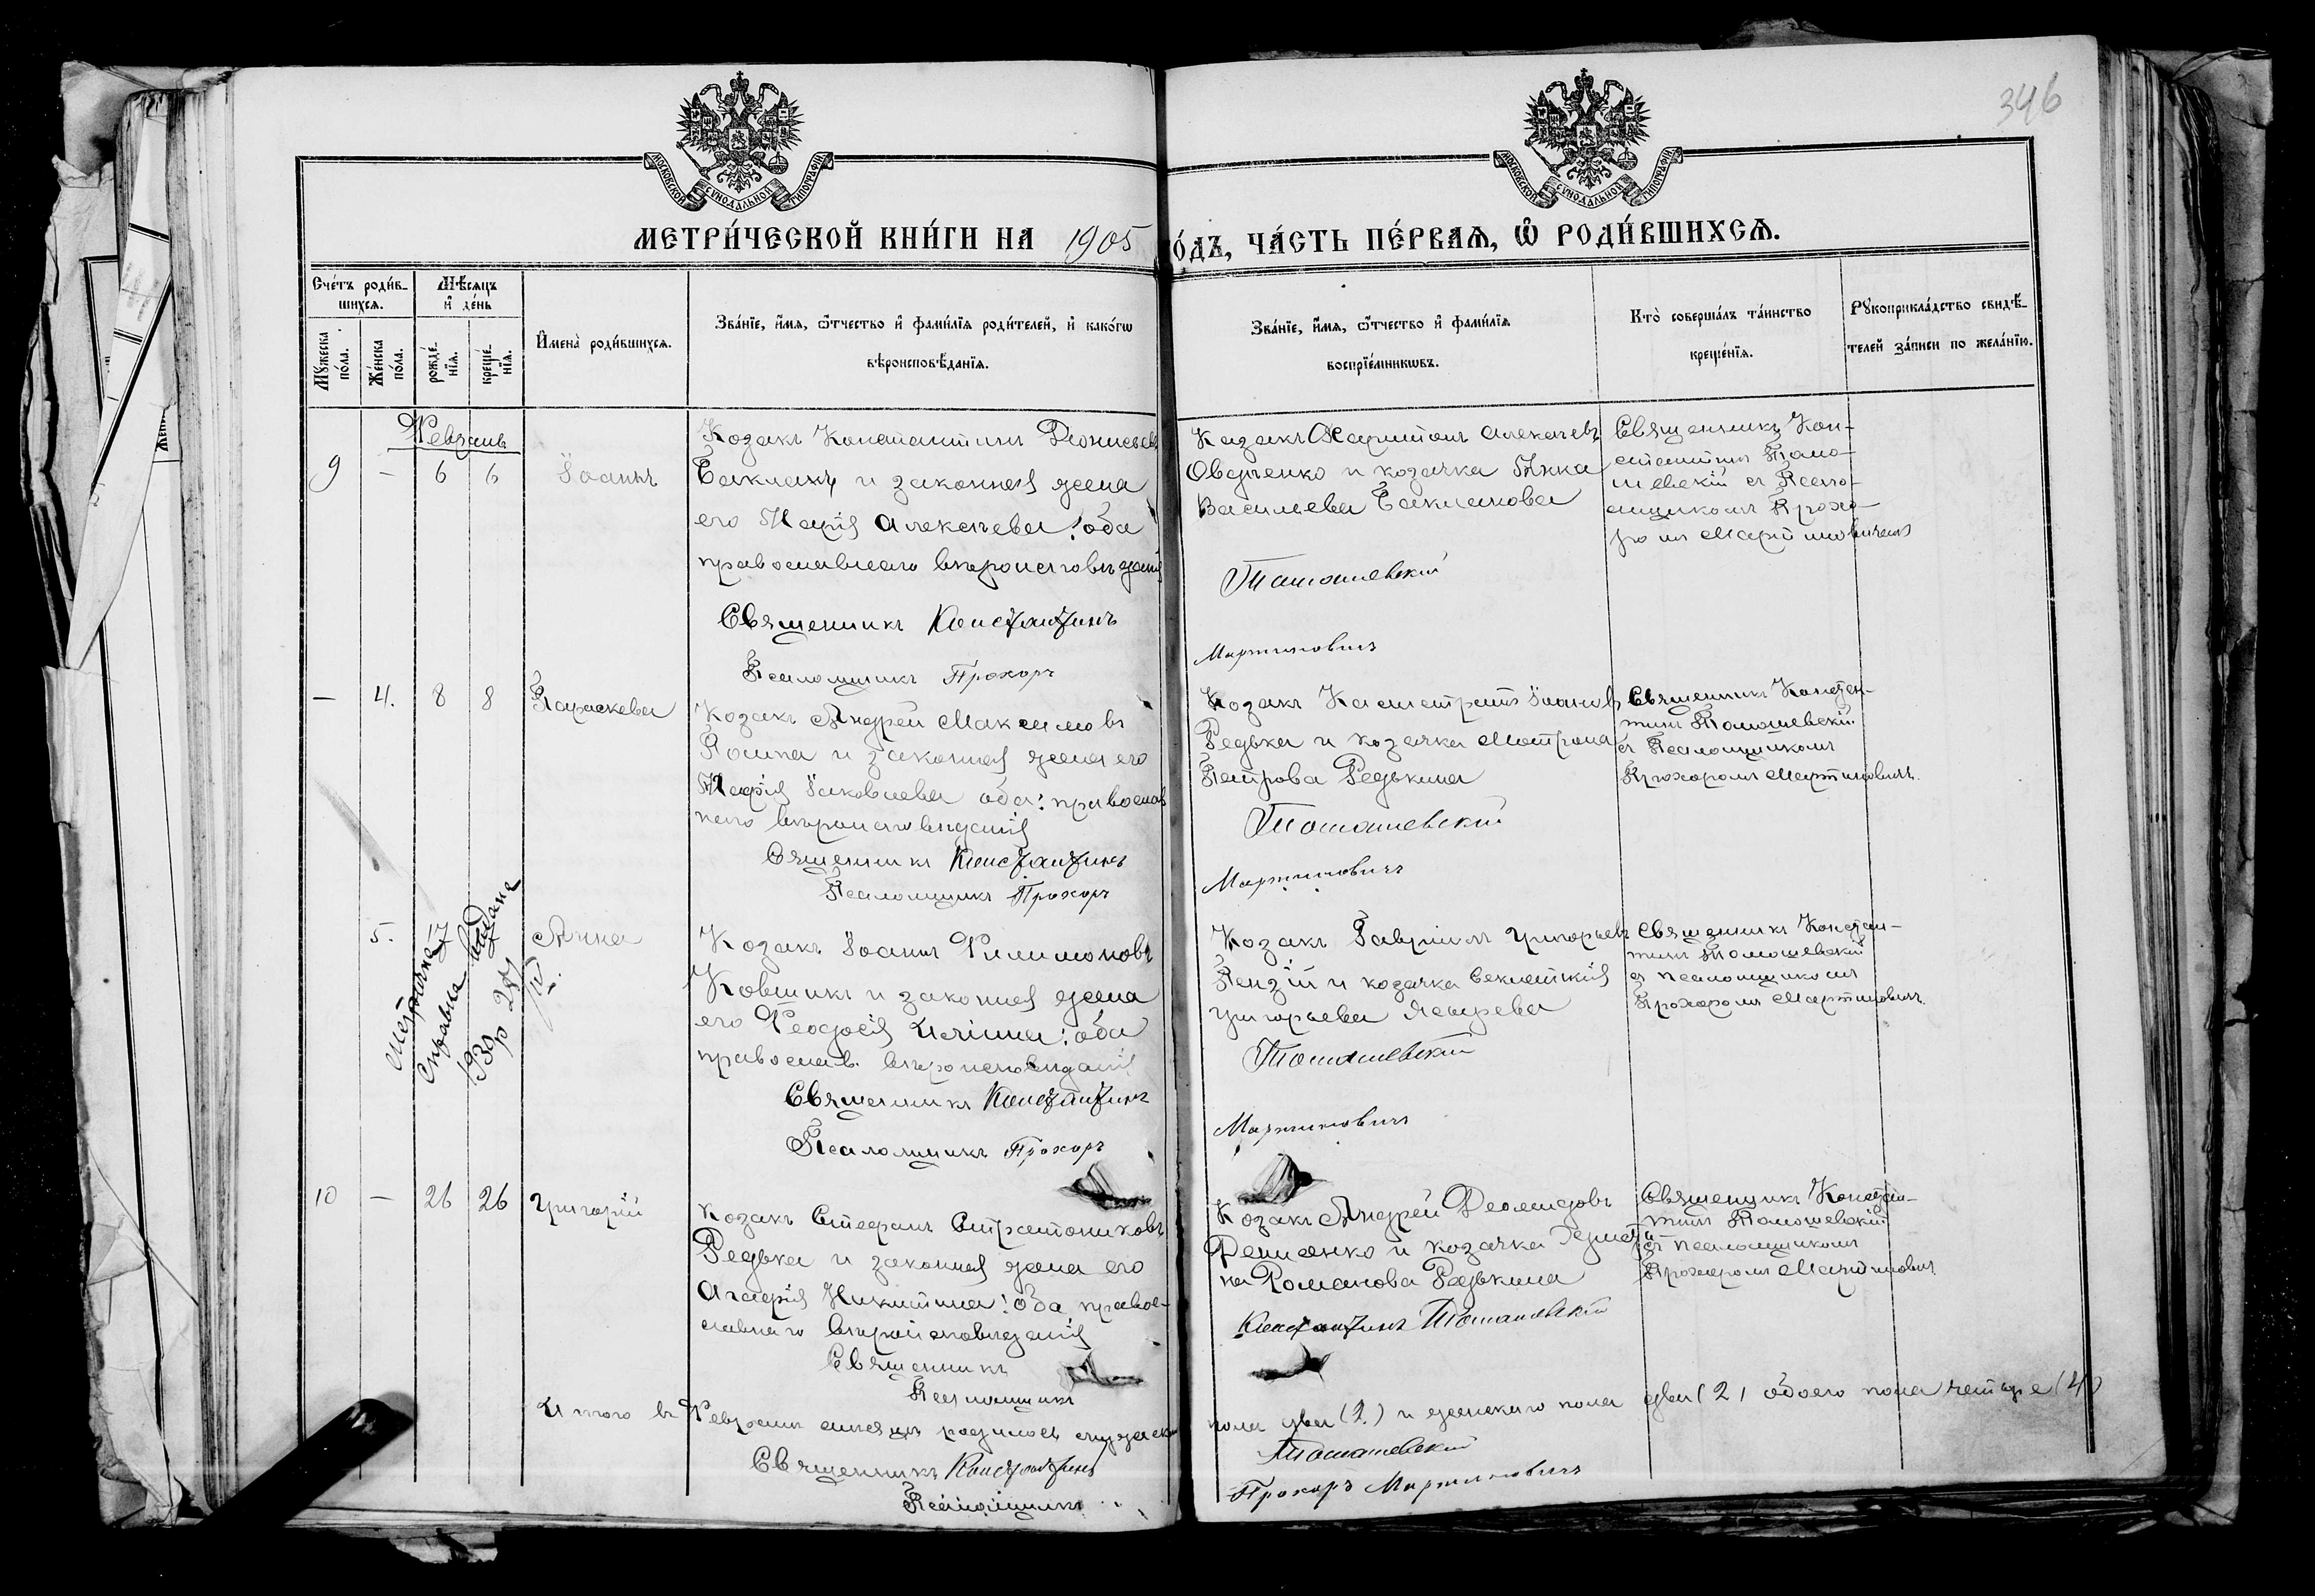 346
МОСКОВСКОЙ СѴНОДАЛЬНОЙ ТИПОГРАФІИ
МОСКОВСКОЙ СѴНОДАЛЬНОЙ ТИПОГРАФІИ
МЕТРИ́ЧЕСКОЙ КНИ́ГИ НА 1905
О́ДЪ, ЧА́СТЬ ПЕ́РВАѦ, Ѡ҆ РОДИ́ВШИХСѦ.
Сче́тъ роди́в-
шихсѧ.
Мѣ́сѧцъ
и҆ де́нь
Мꙋ́жеска
по́ла.
Же́нска
по́ла.
рожде́-
нїѧ.
креще́-
нїѧ.
И҆мена̀ роди́вшихсѧ.
Зва́нїе, и҆́мѧ, ѻ҆́тчество и҆ фами́лїѧ роди́телей, и҆ како́гѡ
вѣроисповѣ́данїѧ.
Зва́нїе, и҆́мѧ, ѻ҆́тчество и҆ фами́лїѧ
воспрїе́мникѡвъ.
Кто̀ соверша́лъ та́инство
креще́нїѧ.
Рꙋкоприкла́дство свидѣ́-
телей за́писи по жела́нїю.
Февраль
9 - 6 6 Іоаннъ
Козакъ Константинъ Діонисіевъ
Бакланъ и законная жена
его Марія Алексѣева: оба
православнаго вѣроисповѣданія
Священникъ Константинъ
Псаломщикъ Прохоръ
Казакъ Харитонъ Алексѣевъ
Овдѣенко и козачка Анна
Васильева Бакланова
Томашевскій
Мартиновичъ
Священникъ Кон-
стантинъ Тома-
шевскій съ Псало-
мщикомъ Прохо-
ромъ Мартиновичемъ
— 4. 8 8 Параскева
Козакъ Андрей Максимовъ
и законная жена его
Марія Іаковлева оба: православ
наго вѣроисповѣданія
Священникъ Константинъ
Псаломщикъ Прохоръ
Козакъ Каллистратъ Іоановъ
Редька и козачка Матрона
Петрова Редькина
Томашевскій
Мартиновичъ
Священникъ Констан-
тинъ Томашевскій
съ Псаломщикомъ
Прохоромъ Мартиновичъ.
5. Анна
Метрична
справка видана
1930 р
Козакъ Іоанъ Филимоновъ
Ковшикъ и законная жена
его Феодосія оба
православ. вѣроисповѣданія
Священникъ Константинъ
Псаломщикъ Прохоръ
Козакъ Гавріилъ Григорьевъ
и козачка
Григорьева
Томашевскій
Мартиновичъ
Священникъ Констан-
тинъ Томашевскій
съ псаломщикомъ
Прохоромъ Мартиновичъ.
10 — 26 26 Григорій
Козакъ Стефанъ Стратониковъ
Редька и законная жена его
Агафія Никитина: оба право-
славнаго вѣроисповѣданія
Священникъ
Псаломщикъ
Козакъ Андрей Діомидовъ
Денисенко и козачка
на Романова Редькина
Константинъ Томашевскій
Священникъ Констан-
тинъ Томашевскій
съ псаломщикомъ
Прохоромъ Мартиновичъ
Итого въ Февралѣ мѣсяцѣ родилось мужеска
пола два (2) и женскаго пола два (2) обоего пола четыре (4)
Священникъ Константинъ
Томашевскій
Псаломщикъ
Прохоръ Мартиновичъ